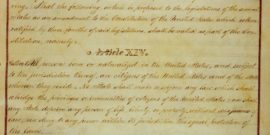 That the following article is proposed to the legislatures of the several
as an amendment to the Constitution of the United States which when
ratified by three fourths of said legislatures, shall be valid as part of the Con-
stitution, namely:
Article XIV.
All persons born or naturalized in the United States, and subject
to the jurisdiction thereof, are citizens of the United States and of the State
wherein they reside. No State shall make or enforce any law which shall
abridge the privileges or immunities of citizens of the United States; nor shall
any State deprive any person of life, liberty, or property, without due process of
law; nor deny to any person within its jurisdiction the equal protection of
the laws.